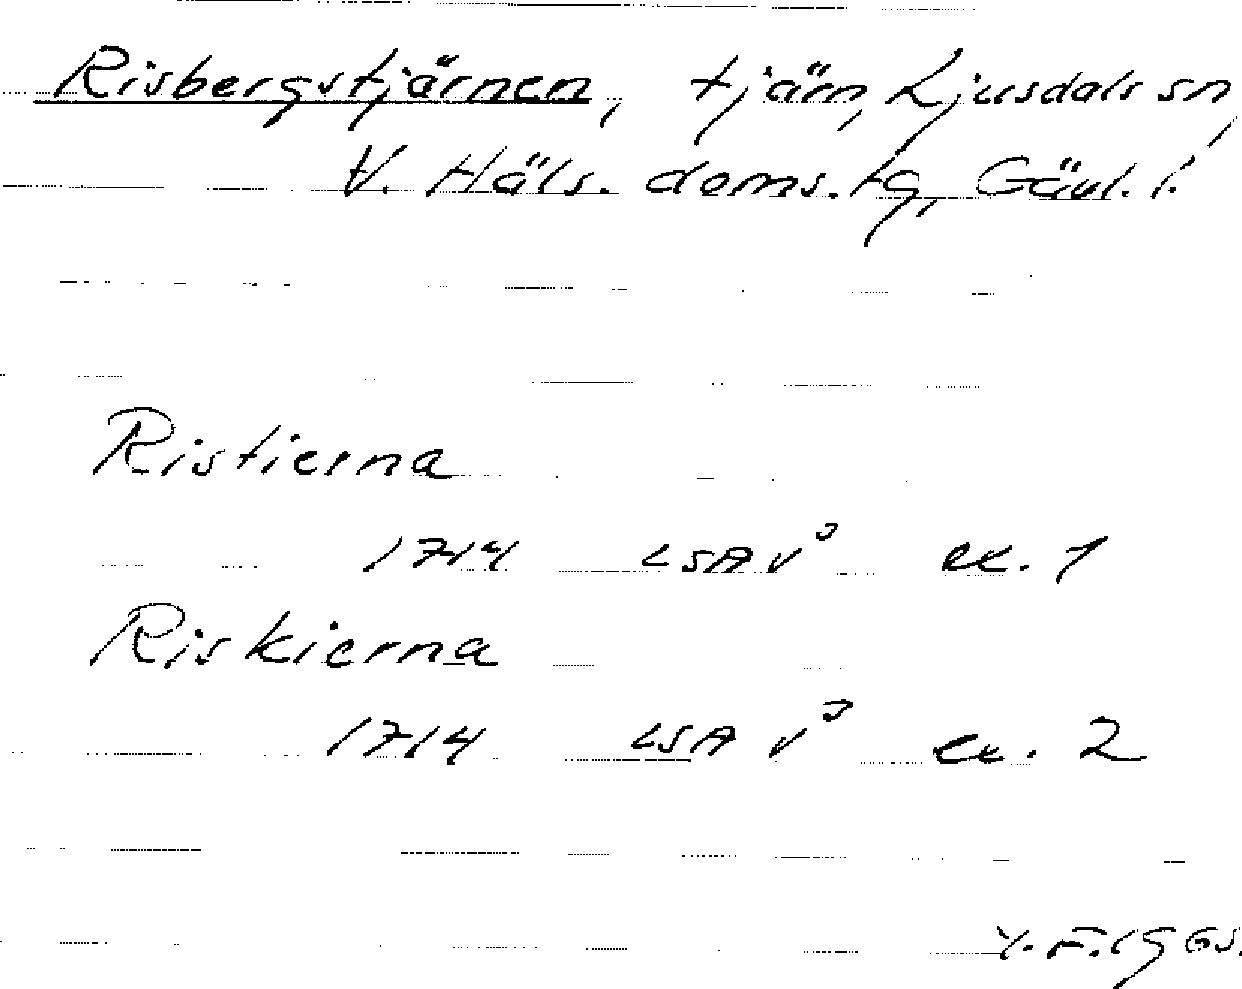 Risbergstjärnen, tjärn, Ljusdals sn,
V. Häls. doms.tg, Gävl. l.
Ristierna
1714 LSA V³ ex. 1
Riskierna
1714 LSA V³ ex. 2
Y.F. 1965.